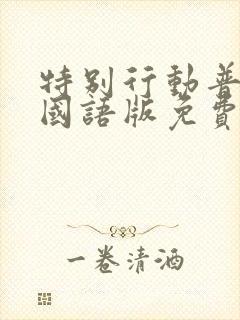 特别行動普
國語版免費
一卷清酒